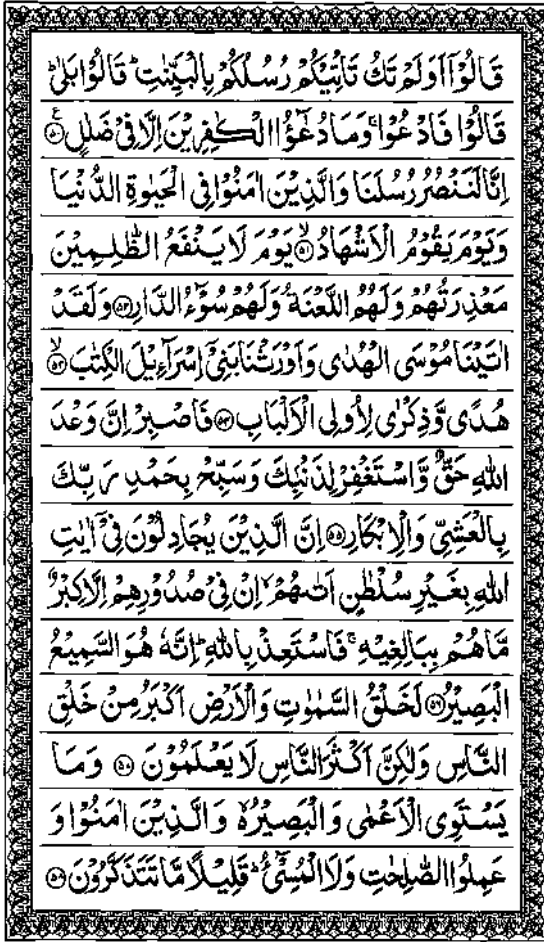 قَالُوْۤا اَوَلَمْ تَكُ تَاْتِيْكُمْ رُسُلُكُمْ بِالْبَيِّنٰتِ ؕ قَالُوْا بَلٰى ؕ
قَالُوْا فَادْعُوْا ۚ وَمَا دُعٰٓؤُا الْكٰفِرِيْنَ اِلَّا فِىْ ضَلٰلٍ ۧ﴿۵۰﴾
اِنَّا لَنَنْصُرُ رُسُلَنَا وَالَّذِيْنَ اٰمَنُوْا فِى الْحَيٰوةِ الدُّنْيَا
وَيَوْمَ يَقُوْمُ الْاَشْهَادُ ۙ﴿۵۱﴾ يَوْمَ لَا يَنْفَعُ الظّٰلِمِيْنَ
مَعْذِرَتُهُمْ وَلَهُمُ اللَّعْنَةُ وَلَهُمْ سُوْٓءُ الدَّارِ ﴿۵۲﴾ وَلَقَدْ
اٰتَيْنَا مُوْسَى الْهُدٰى وَاَوْرَثْنَا بَنِىْۤ اِسْرَآءِيْلَ الْكِتٰبَ ۙ﴿۵۳﴾
هُدًى وَّذِكْرٰى لِاُولِى الْاَلْبَابِ ﴿۵۴﴾ فَاصْبِرْ اِنَّ وَعْدَ
اللّٰهِ حَقٌّ وَّاسْتَغْفِرْ لِذَنْۢبِكَ وَسَبِّحْ بِحَمْدِ رَبِّكَ
بِالْعَشِىِّ وَالْاِبْكَارِ ﴿۵۵﴾ اِنَّ الَّذِيْنَ يُجَادِلُوْنَ فِىْۤ اٰيٰتِ
اللّٰهِ بِغَيْرِ سُلْطٰنٍ اَتٰىهُمْ ۙ اِنْ فِىْ صُدُوْرِهِمْ اِلَّا كِبْرٌ
مَّا هُمْ بِبَالِغِيْهِ ۚ فَاسْتَعِذْ بِاللّٰهِ ؕ اِنَّهٗ هُوَ السَّمِيْعُ
الْبَصِيْرُ ﴿۵۶﴾ لَخَلْقُ السَّمٰوٰتِ وَالْاَرْضِ اَكْبَرُ مِنْ خَلْقِ
النَّاسِ وَلٰكِنَّ اَكْثَرَ النَّاسِ لَا يَعْلَمُوْنَ ﴿۵۷﴾ وَمَا
يَسْتَوِى الْاَعْمٰى وَالْبَصِيْرُ ۙ وَالَّذِيْنَ اٰمَنُوْا وَ
عَمِلُوا الصّٰلِحٰتِ وَلَا الْمُسِىْٓءُ ؕ قَلِيْلًا مَّا تَتَذَكَّرُوْنَ ﴿۵۸﴾